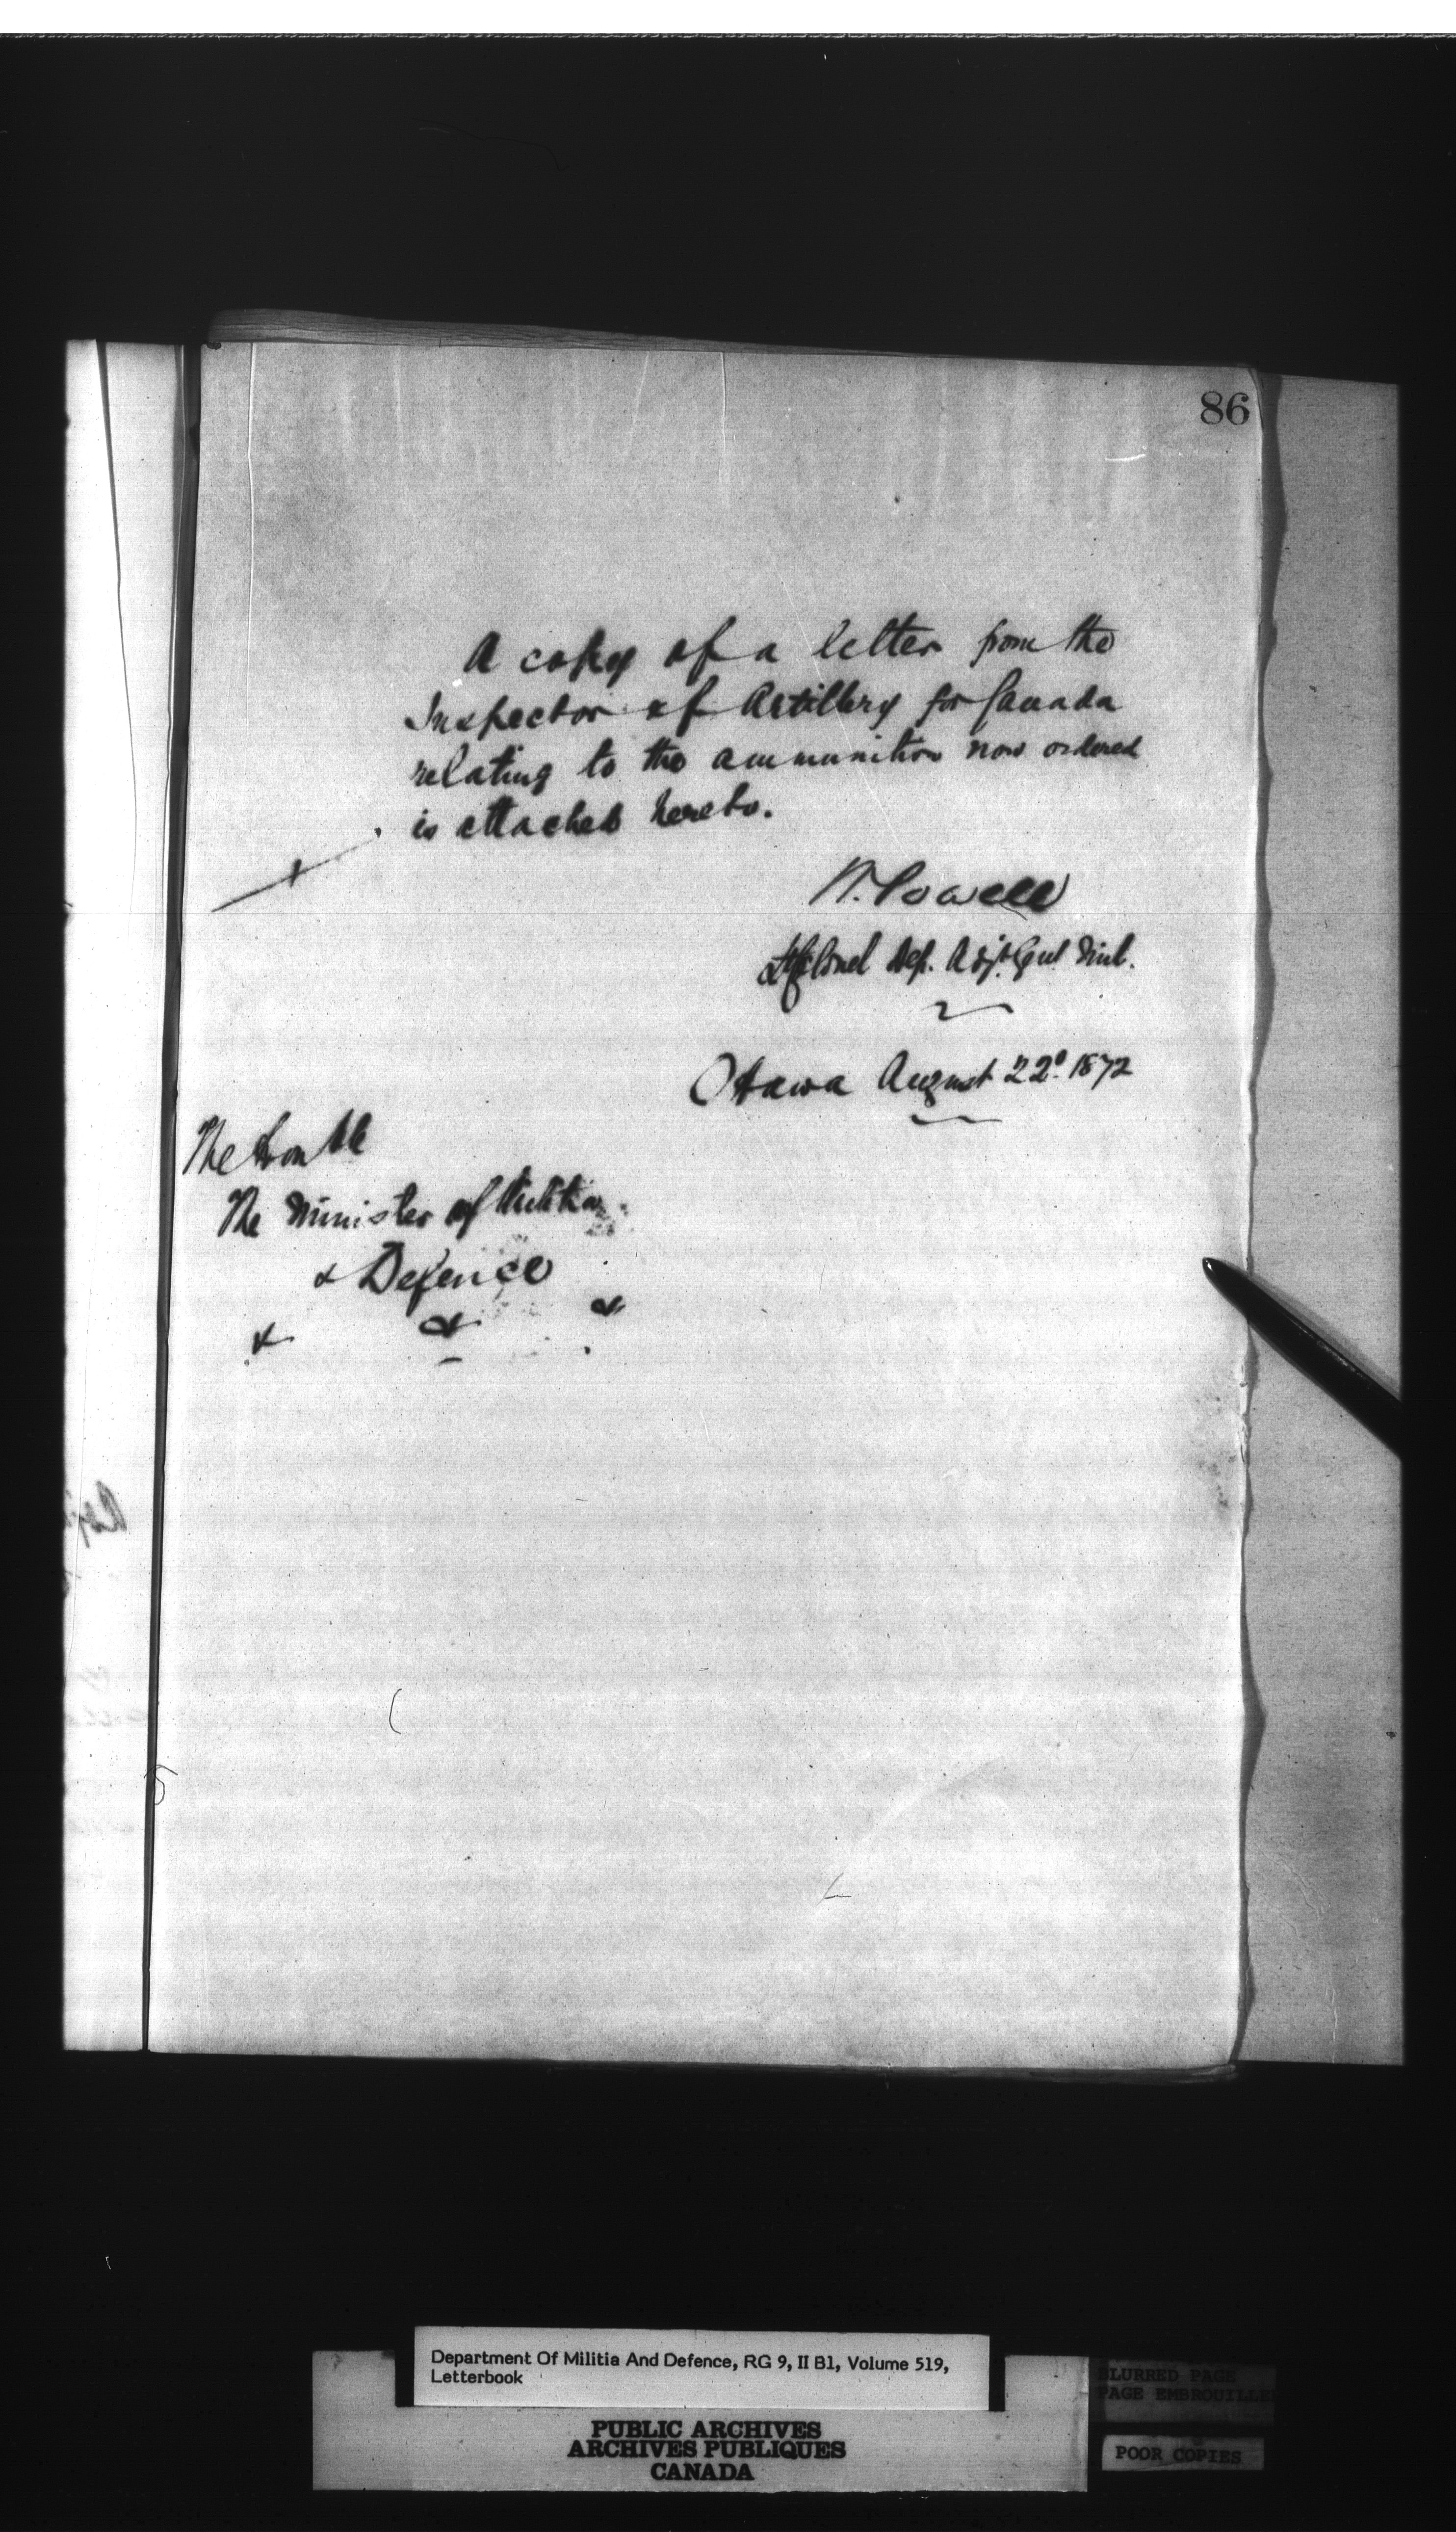 86
A copy of a letter from the
Inspector of Artillery for Canada
relating to the ammunition now ordered
is attached hereto.
W. Powell
Lt Colonel Dep. Adjt Genl
Ottawa August 22d. 1872
The Honble
The Minister of Militia
& Defence
& & &
Department Of Militia And Defence, RG 9, II B1, Volume 519,
Letterbook
PUBLIC ARCHIVES
ARCHIVES PUBLIQUES
CANADA
BLURRED PAGE
PAGE EMBROUILLEE
POOR COPIES